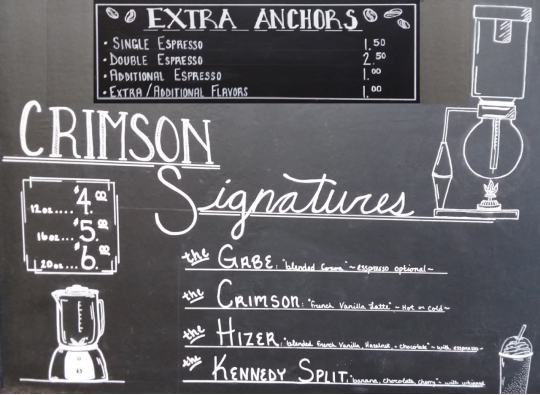 EXTRA ANCHORS
• SINGLE ESPRESSO 1.50
• DOUBLE ESPRESSO 2.50
• ADDITIONAL ESPRESSO 1.00
• EXTRA/ADDITIONAL FLAVORS 1.00
CRIMSON
Signatures
12oz.... $4.00
16oz.... $5.00
20oz.... $6.00
the GABE: "blended Cocoa" ~ espresso optional ~
the CRIMSON: "French Vanilla Latte" ~ Hot or cold ~
the HIZER: "blended French Vanilla, Hazelnut, + chocolate" ~ with espresso ~
the KENNEDY SPLIT: "banana, chocolate, cherry" ~ with whipped